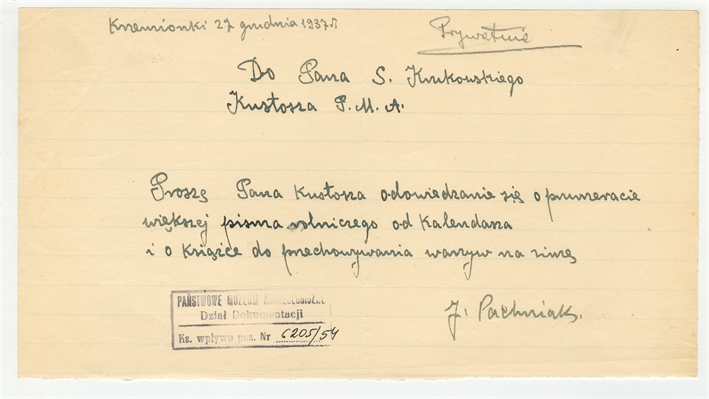 Krzemionki 27 grudnia 1937r
Prywatnie
Do Pana S. Krukowskiego
Kustosza P.M.A.
Proszę Pana Kustosza odowiedzanie się o prumeracie
większej pisma rolniczego od Kalendarza
i o książce do przechowywania warzyw na zimę
J. Pachniak.
PAŃSTWOWE MUZEUM ARCHEOLOGICZNE
Dział Dokumentacji
Ks. wpływu poz. Nr 6205/54